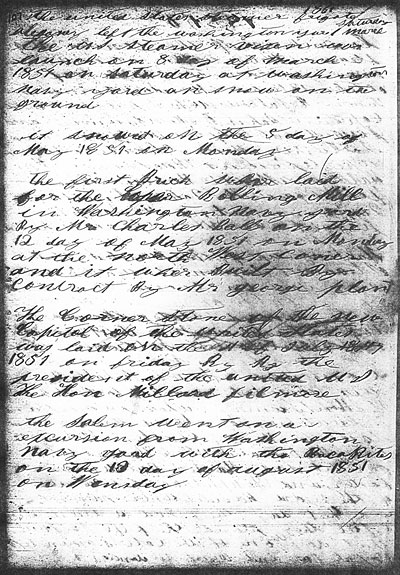 the united States frigate
left the washington yard
the Steamer
launch on 8 day of March
1851 on Saturday at washington
Navy yard an snow on the
ground
it snowed on the 5 day of
May 1851 on Monday
the first brick wher laid
for the Rolling Mill
in Washington Navy yard
By Mr Charles ball on the
12 day of May 1851 on Monday
at the north West Corner
and it wher Built By
Contract By Mr george plan
The Corner Stone of the new
Capitol of the united States
was laid on the July
1851 on friday By By the
president of the united
the Hon Millard filmore
the Salem Went on a
excursion from Washington
Navy yard with the
on the 13 day of august 1851
on Wensday